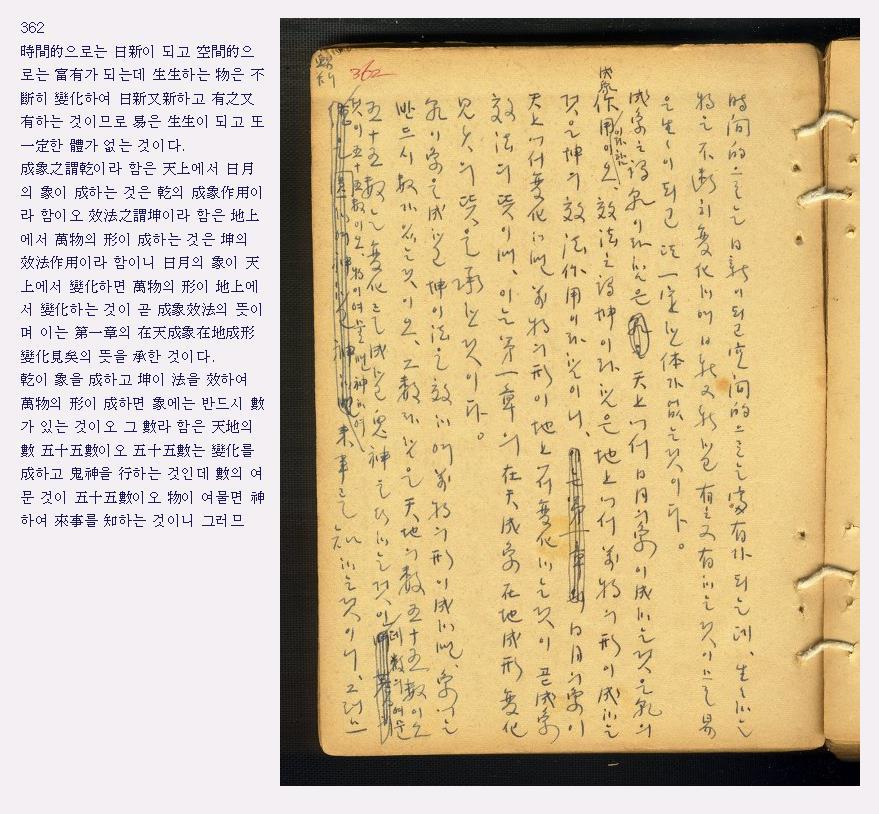 362
時間的으로는 日新이 되고 空間的으
로는 富有가 되는데 生生하는 物은 不
斷히 變化하여 日新又新하고 有之又
有하는 것이므로 易은 生生이 되고 또
一定한 體가 없는 것이다.
成象之謂乾이라 함은 天上에서 日月
의 象이 成하는 것은 乾의 成象作用이
라 함이오 效法之謂坤이라 함은 地上
에서 萬物의 形이 成하는 것은 坤의
效法作用이라 함이니 日月의 象이 天
上에서 變化하면 萬物의 形이 地上에
서 變化하는 것이 곧 成象效法의 뜻이
며 이는 第一章의 在天成象在地成形
變化見矣의 뜻을 承한 것이다.
乾이 象을 成하고 坤이 法을 效하여
萬物의 形이 成하면 象에는 반드시 數
가 있는 것이오 그 數라 함은 天地의
數 五十五數이오 五十五數는 變化를
成하고 鬼神을 行하는 것인데 數의 여
문 것이 五十五數이오 物이 여물면 神
하여 來事를 知하는 것이니 그러므
362
時间的으로는 日新이 되고 空间的으로는 富有가 되는데, 生生하는
物은 不断히 変化하여 日新又新하고 有之又有하는 것이므로 易
은 生生이 되고 또 一定한 体가 없는 것이다。
成象之謂乾이라 함은 天上에서 日月의 象이 成하는 것은 乾의
成象作用이라 함이오, 效法之謂坤이라 함은 地上에서 萬物의 形이 成하는
것은 坤의 效法作用이라 함이니, 日月의 象이
天上에서 変化하면 萬物의 形이 地上에서 変化하는 것이 곧 成象
效法의 뜻이며, 이는 第一章의 在天成象在地成形変化
見矣의 뜻을 承한 것이다。
乾이 象을 成하고 坤이 法을 效하여 萬物의 形이 成하면, 象에는
반드시 数가 있는 것이오, 그 数라 함은 天地의 数 五十五数이오
五十五数는 変化를 成하고 鬼神을 行하는 것인데 数의 여문
것이 五十五数이오, 物이 여물면 神하여 来事를 知하는 것이니, 그러므